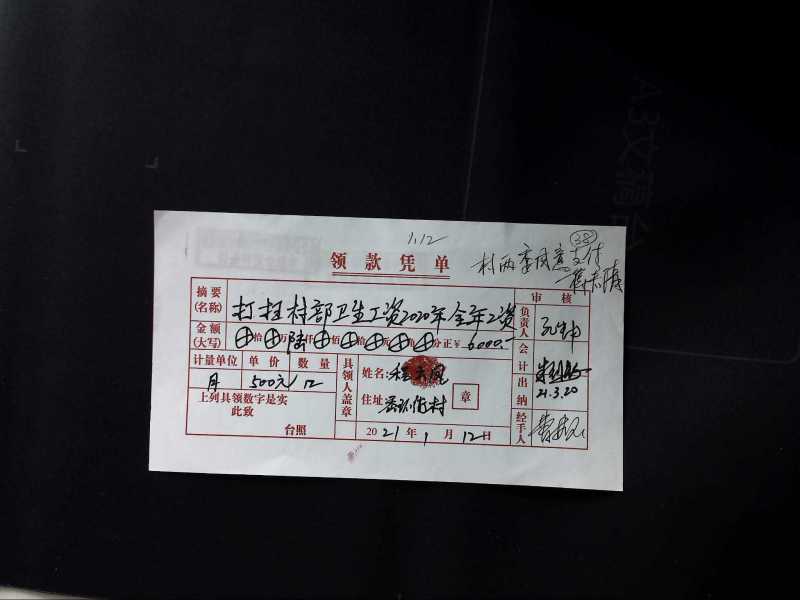 1.12
38
领款凭单
村两委同意支付
摘要(名称) 打扫村部卫生工资2020年全年工资
审核
负责人
金额(大写) ⊕拾⊕万陆仟⊕佰⊕拾⊕元⊕角⊕分正¥ 6000.-
计量单位 单价 数量
月 500元 12
上列具领数字是实
此致
台照
具领人盖章
姓名:
住址: 村
章
2021年1月12日
会计出纳
21.3.20
经手人
A3文稿台